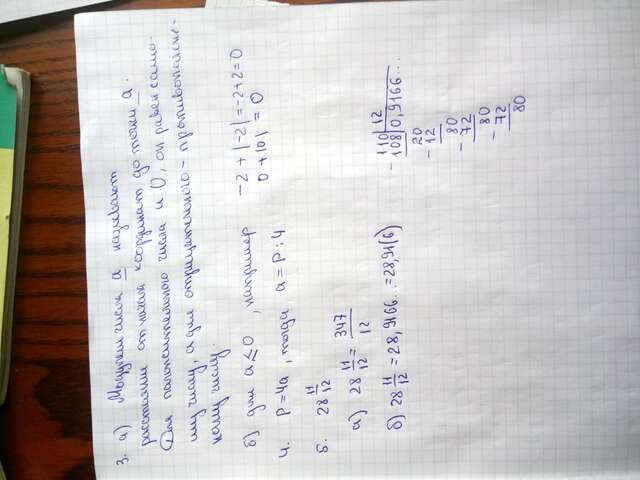 3. а) Модулем числа а называют
расстояние от начала координат до точки а.
Для положительного числа и 0, он равен само-
му числу, а для отрицательного - противополож-
ному числу.
б) для а ≤ 0, например -2 + |-2| = -2+2=0
0 + |0| = 0
4. P=4a, тогда a = P : 4
5. 28 11/12
а) 28 11/12 = 347/12
б) 28 11/12 = 28,9166... = 28,91(6)
- 110 | 12
108 | 0,9166...
20
- 12
80
- 72
80
- 72
80